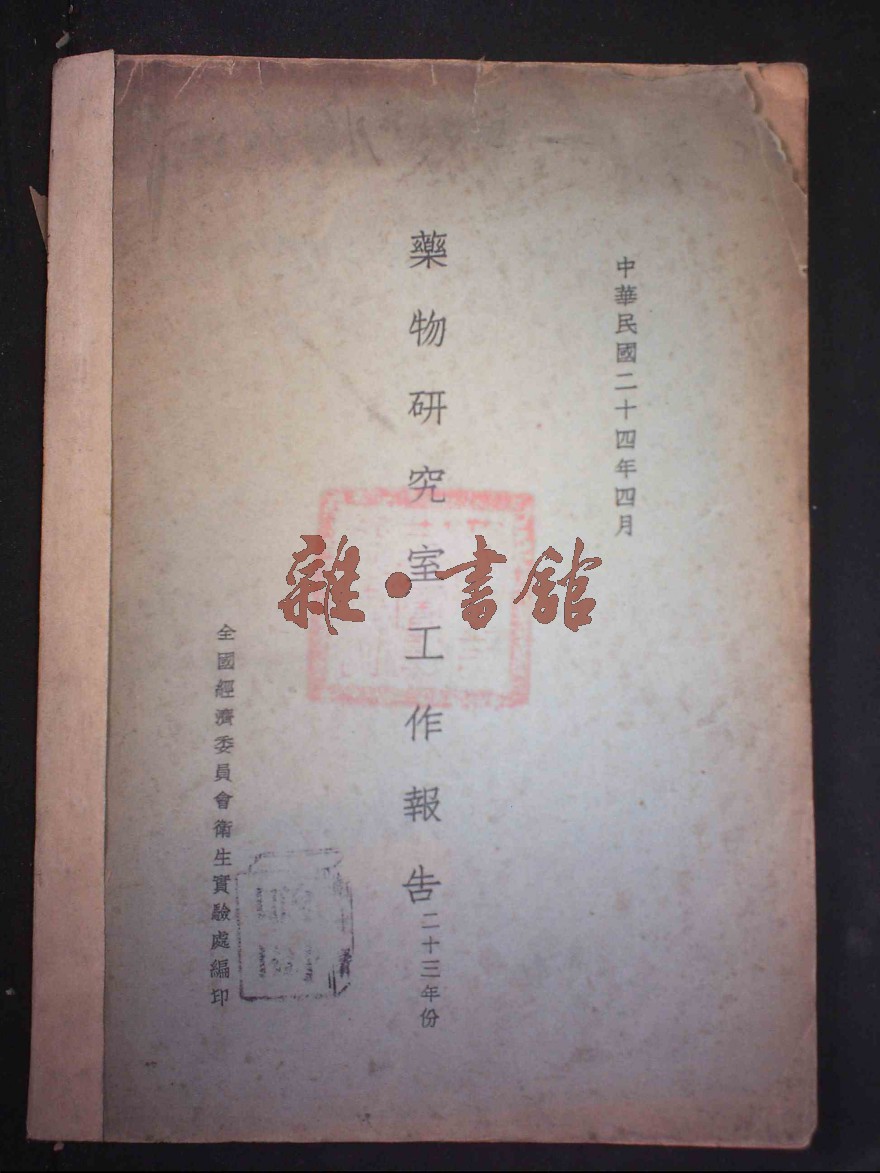 中華民國二十四年四月
藥物研究室工作報告二十三年份
全國經濟委員會衛生實驗處編印
雜•書館